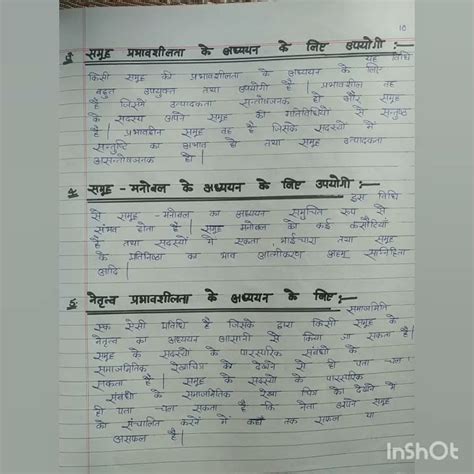 10
3. समूह प्रभावशीलता के अध्ययन के लिए उपयोगी :-
यह विधि
किसी समूह की प्रभावशीलता के अध्ययन के लिए
बहुत उपयुक्त तथा उपयोगी है | प्रभावशील वह
है जिसमें उत्पादकता सन्तोषजनक हो और समूह
के सदस्य अपने समूह की गतिविधियों से सन्तुष्ट
है | प्रभावहीन समूह वह है जिसके सदस्यों में
सन्तुष्टि का अभाव हो तथा समूह उत्पादकता
असन्तोषजनक हो |
4. समूह - मनोबल के अध्ययन के लिए उपयोगी :-
इस विधि
से समूह - मनोबल का अध्ययन समुचित रूप से
संभव होता है | समूह मनोबल की कई कसौटियाँ
है तथा सदस्यों में एकता, भाईचारा तथा समूह
के प्रति निष्ठा का भाव आत्मीकरण अहम् सन्निहिता
आदि |
5. नेतृत्व प्रभावशीलता के अध्ययन के लिए :-
समाजमिति
एक ऐसी प्रविधि है जिसके द्वारा किसी समूह के
नेतृत्व का अध्ययन आसानी से किया जा सकता है |
समूह के सदस्यों के पारस्परिक संबंधो के
समाजमितिक रेखाचित्र को देखने से ही पता चल
सकता है | समूह के सदस्यों के पारस्परिक
संबंधो के समाजमितिक रेखा चित्र को देखने से
ही पता चल सकता है कि नेता अपने समूह
को संचालित करने में कहाँ तक सफल या
असफल है |
InShOt